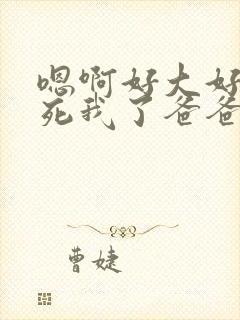 嗯啊好大好
死我了爸爸
曹婕